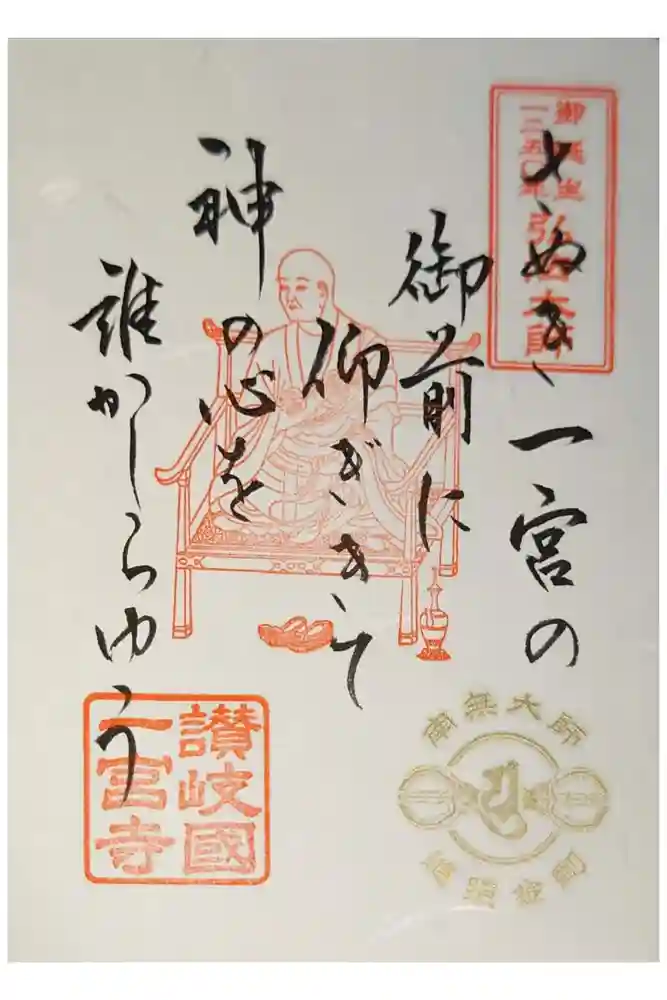 御誕生
一二五〇年
弘法大師
さぬき一宮の
御前に
仰ぎきて
神の心を
誰かしらゆう
讚岐國
一宮寺
南無大師
遍照金剛